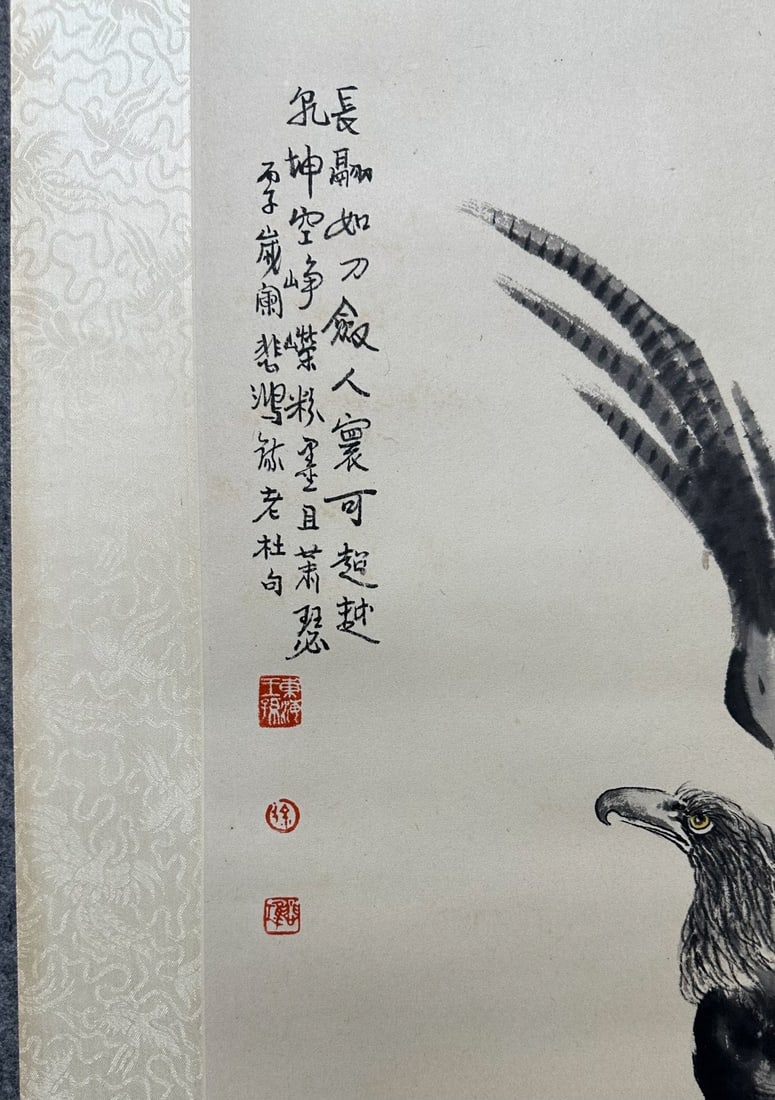 長翮如刀劔人寰可超越
乾坤空崢嶸粉墨且蕭瑟
丙子歲闌悲鴻錄老杜句
東海王孫
徐